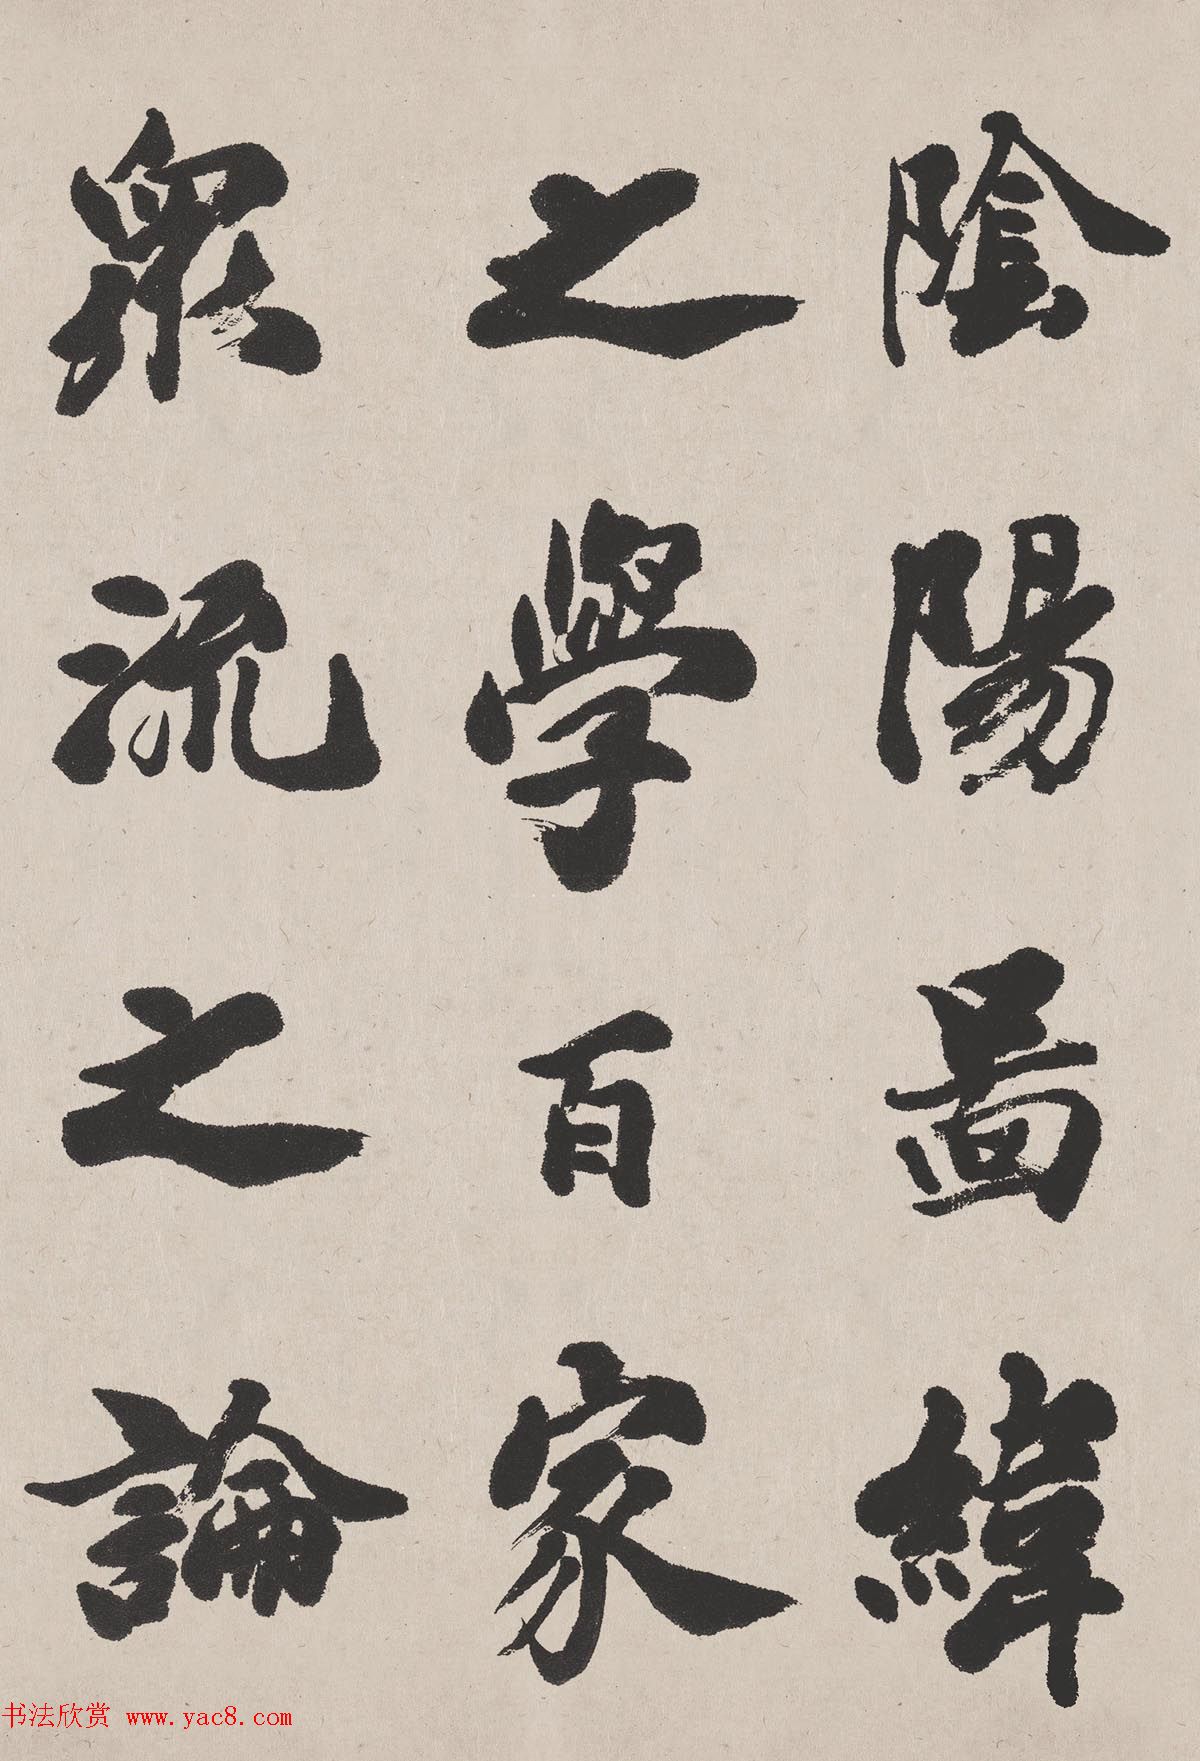 陰陽圖緯
之學百家
眾流之論
书法欣赏 www.yac8.com